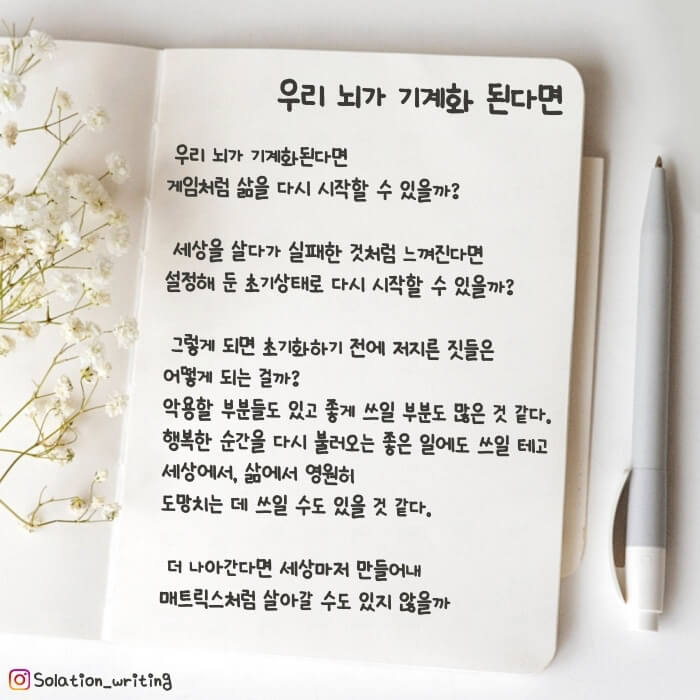 우리 뇌가 기계화 된다면
우리 뇌가 기계화된다면
게임처럼 삶을 다시 시작할 수 있을까?
세상을 살다가 실패한 것처럼 느껴진다면
설정해 둔 초기상태로 다시 시작할 수 있을까?
그렇게 되면 초기화하기 전에 저지른 짓들은
어떻게 되는 걸까?
악용할 부분들도 있고 좋게 쓰일 부분도 많은 것 같다.
행복한 순간을 다시 불러오는 좋은 일에도 쓰일 테고
세상에서, 삶에서 영원히
도망치는 데 쓰일 수도 있을 것 같다.
더 나아간다면 세상마저 만들어내
매트릭스처럼 살아갈 수도 있지 않을까
Solation_writing